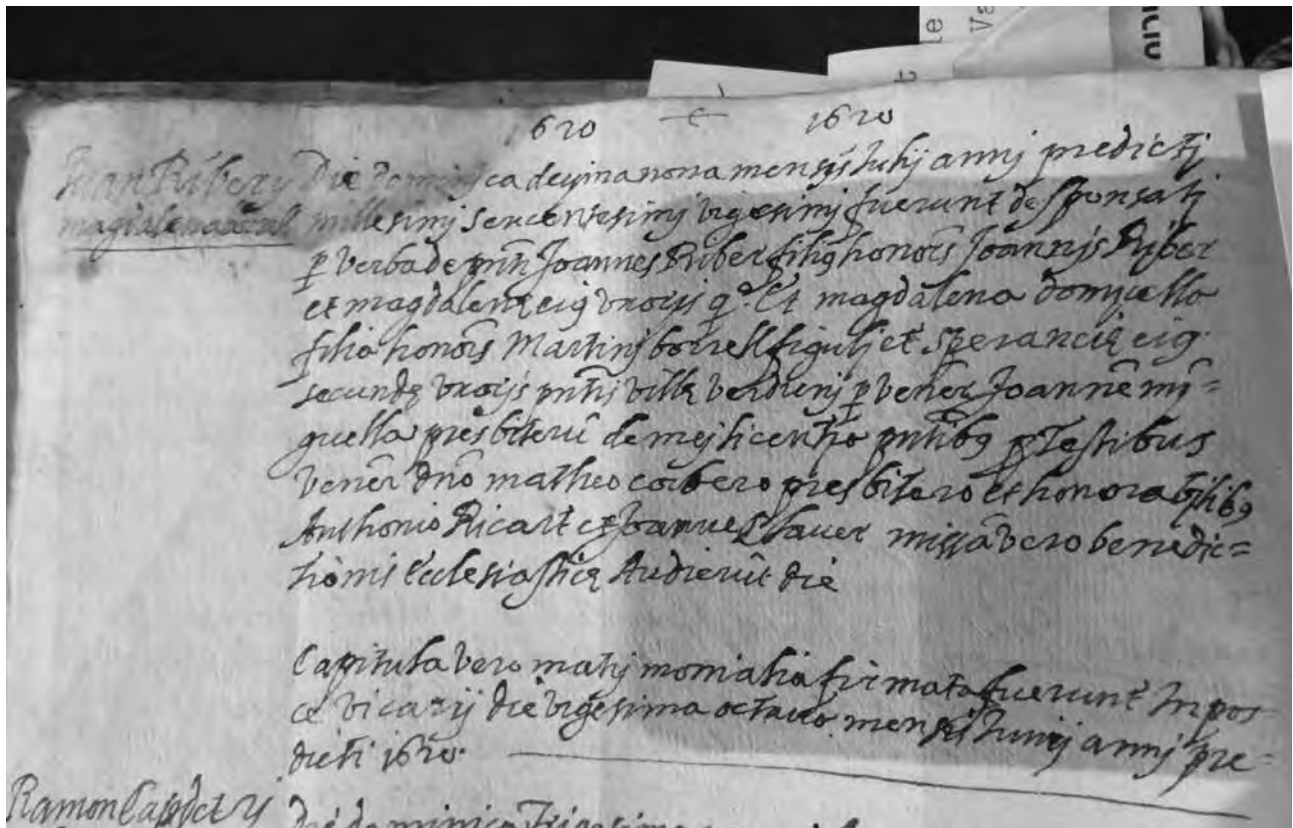 1620 1620
Juan Riber y Die dominica decima nona mensis Julij annj predictj
magdalena borrell millesimj sexcentesimj vigesimj fuerunt desponsatj
p verba de pnti Joannes Riber filius honors Joannis Riber
et magdalene eius vxoris q.º Et magdalena domicella
filia honors Martinj borrell figulj et sperancie eius
secunde vxoris pntis ville verdunj p vener Joannem mi=
quella presbiterū de mej licentia pntibus p testibus
Vener dno matheo corbero presbitero et honorabilibus
Anthonio Ricart et Joannes llauer missā vero benedic=
tionis Ecclesiastice Audierūt die
Capitula vero matrimonialia firmata fuerunt In pos
ce vicarij die vigesima octaua mensis Junij annj pre=
dicti 1620.
Ramon Capdet y Die dominica Tricesima